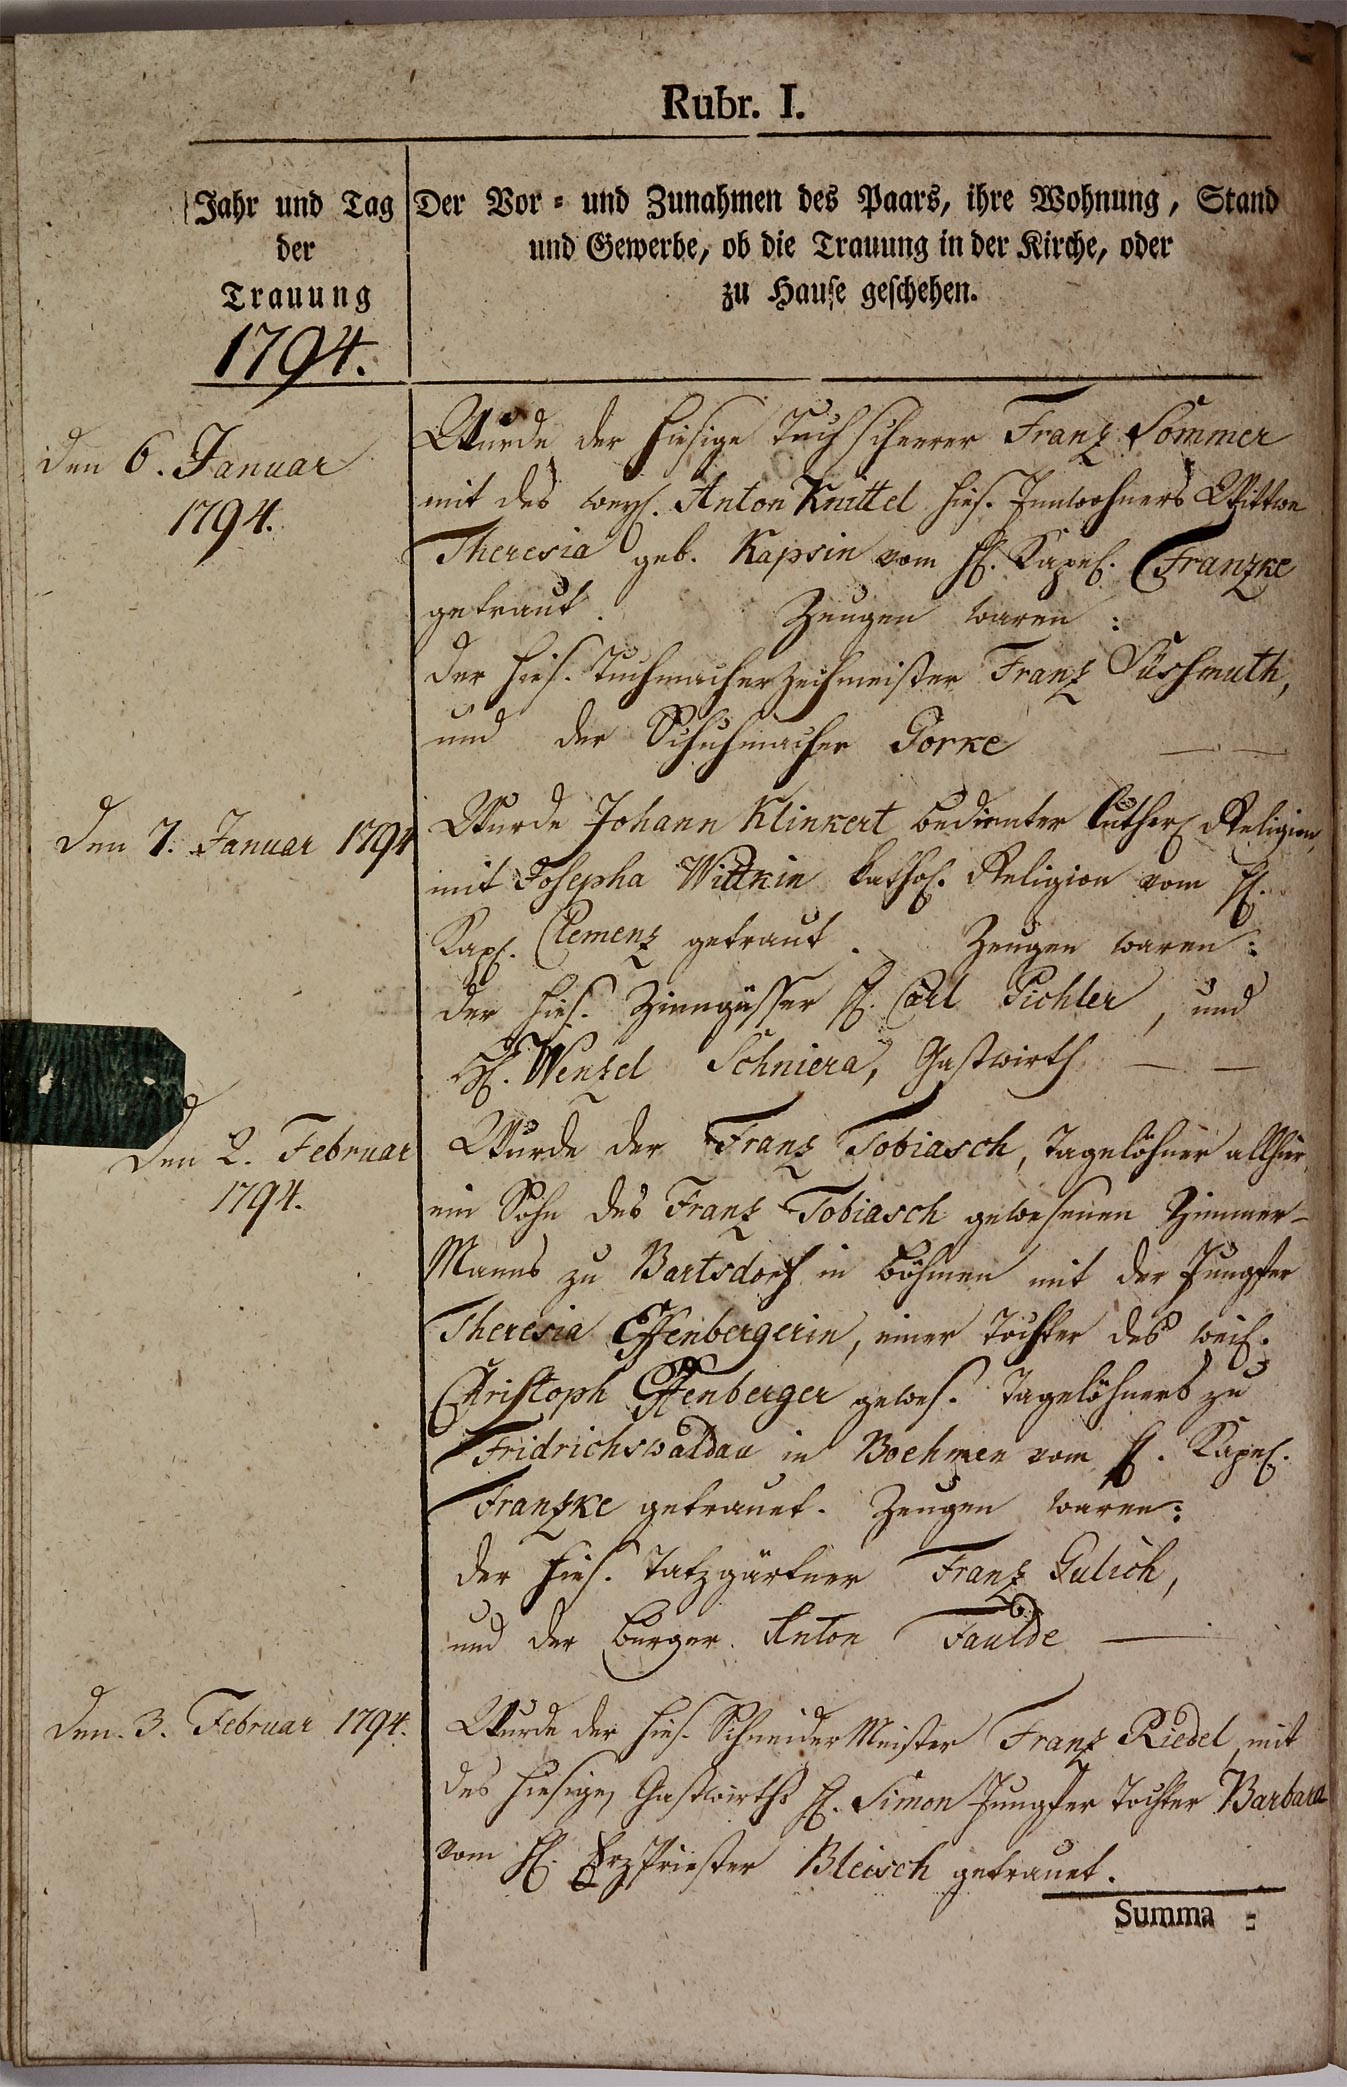 Rubr. I.
Jahr und Tag
der
Trauung
1794.
Der Vor- und Zunahmen des Paars, ihre Wohnung, Stand
und Gewerbe, ob die Trauung in der Kirche, oder
zu Hause geschehen.
den 6. Januar
1794.
Wurde der hiesige Tuchscheerer Franz Sommer
mit des weyl. Anton Knittel hies. Innwohners Wittwe
Theresia geb. Kapsin vom H. Kapel. Franzke
getraut. Zeugen waren:
der hies. Tuchmacherzechmeister Franz Süssmuth,
und der Schuhmacher Porke
den 7. Januar 1794
Wurde Johann Klinkert bedienter luther. Religion,
mit Josepha Wittkin kathol. Religion vom H.
Kapl. Clemenz getraut. Zeugen waren:
der hies. Zinngüsser H. Carl Pichler, und
H. Wenzel Schniera, Gastwirth
den 2. Februar
1794.
Wurde der Franz Tobiasch, Tagelöhner allhier,
ein Sohn des Franz Tobiasch gewesenen Zimmer-
Manns zu Bartsdorf in Böhmen mit der Jungfer
Theresia Effenbergerin, einer Tochter des weil.
Christoph Effenberger gewes. Tagelöhners zu
Fridrichswaldau in Boehmen vom H. Kapel.
Franzke getrauet. Zeugen waren:
der hies. Gärtner Franz Gulich,
und der Burger Anton Faulde
den 3. Februar 1794.
Wurde der hies. Schneider Meister Franz Riedel, mit
des hiesigen Gastwirths H. Simon Jungfer Tochter Barbara
vom H. Erzpriester Bleisch getrauet.
Summa =